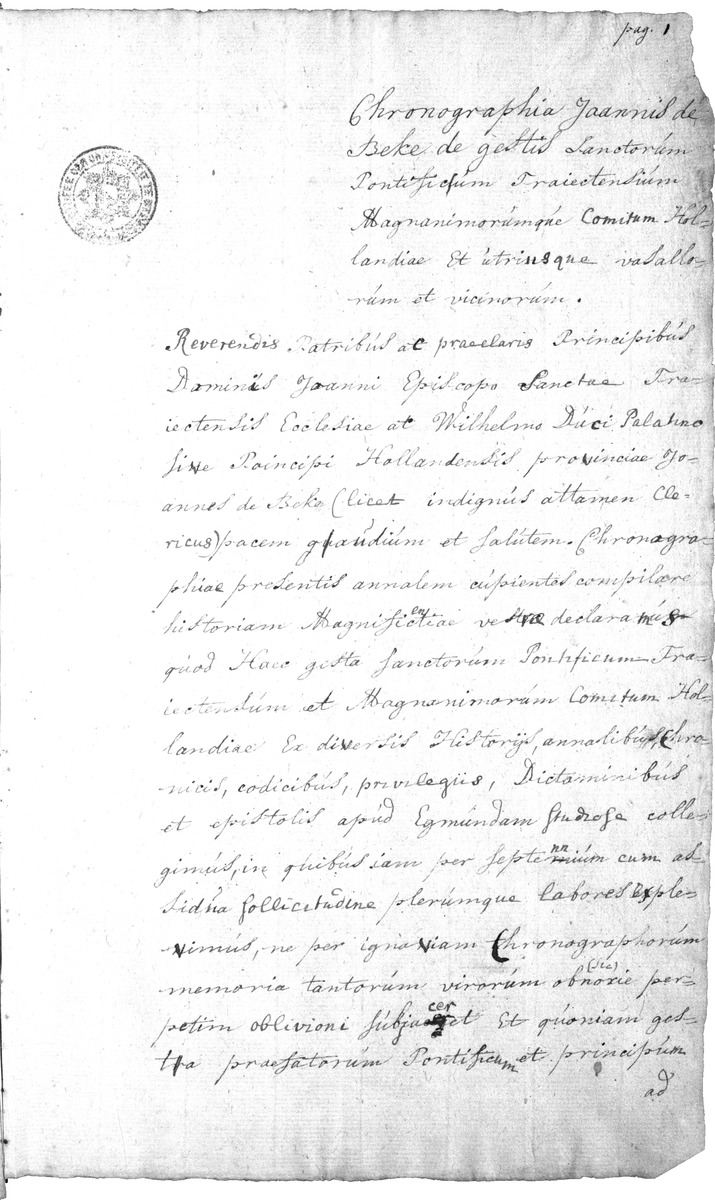 pag. 1
Chronographia Joannis de
Beke de gestis Sanctorúm
Pontificúm Traiectensiúm
Magnanimorúmqúe Comitum Hol-
landiae Et útriusque vasallo-
rúm et vicinorúm.
Reverendis Patribús ac praeclaris Principibús
Dominis Joanni Episcopo Sanctae Tra-
iectensis Ecclesiae ac Wilhelmo Dúci Palatino
sive Principi Hollandensis provinciae Jo-
annes de Beke (licet indignús attamen Cle-
ricus) pacem gaúdiúm et salútem. Chronogra-
phiae presentis annalem cúpientes compilare
historiam Magnificentiae vestrae declaramús
qúod Haec gesta Sanctorúm Pontificum Tra-
iectensiúm et Magnanimorúm Comitum Hol-
landiae Ex diversis Historijs, annalibús, Chro-
nicis, codicibús, privilegiis, Dictaminibús
et epistolis apúd Egmúndam studiose colle-
gimús, in qúibús iam per septenniúm cum as-
sidúa sollicitúdine plerúmque labores exple-
vimús, ne per ignaviam Chronographorúm
memoria tantorúm virorúm obnoxie (sic) per-
petim oblivioni súbjaceret Et qúoniam ges-
ta praefatorúm Pontificum et principúm
ad